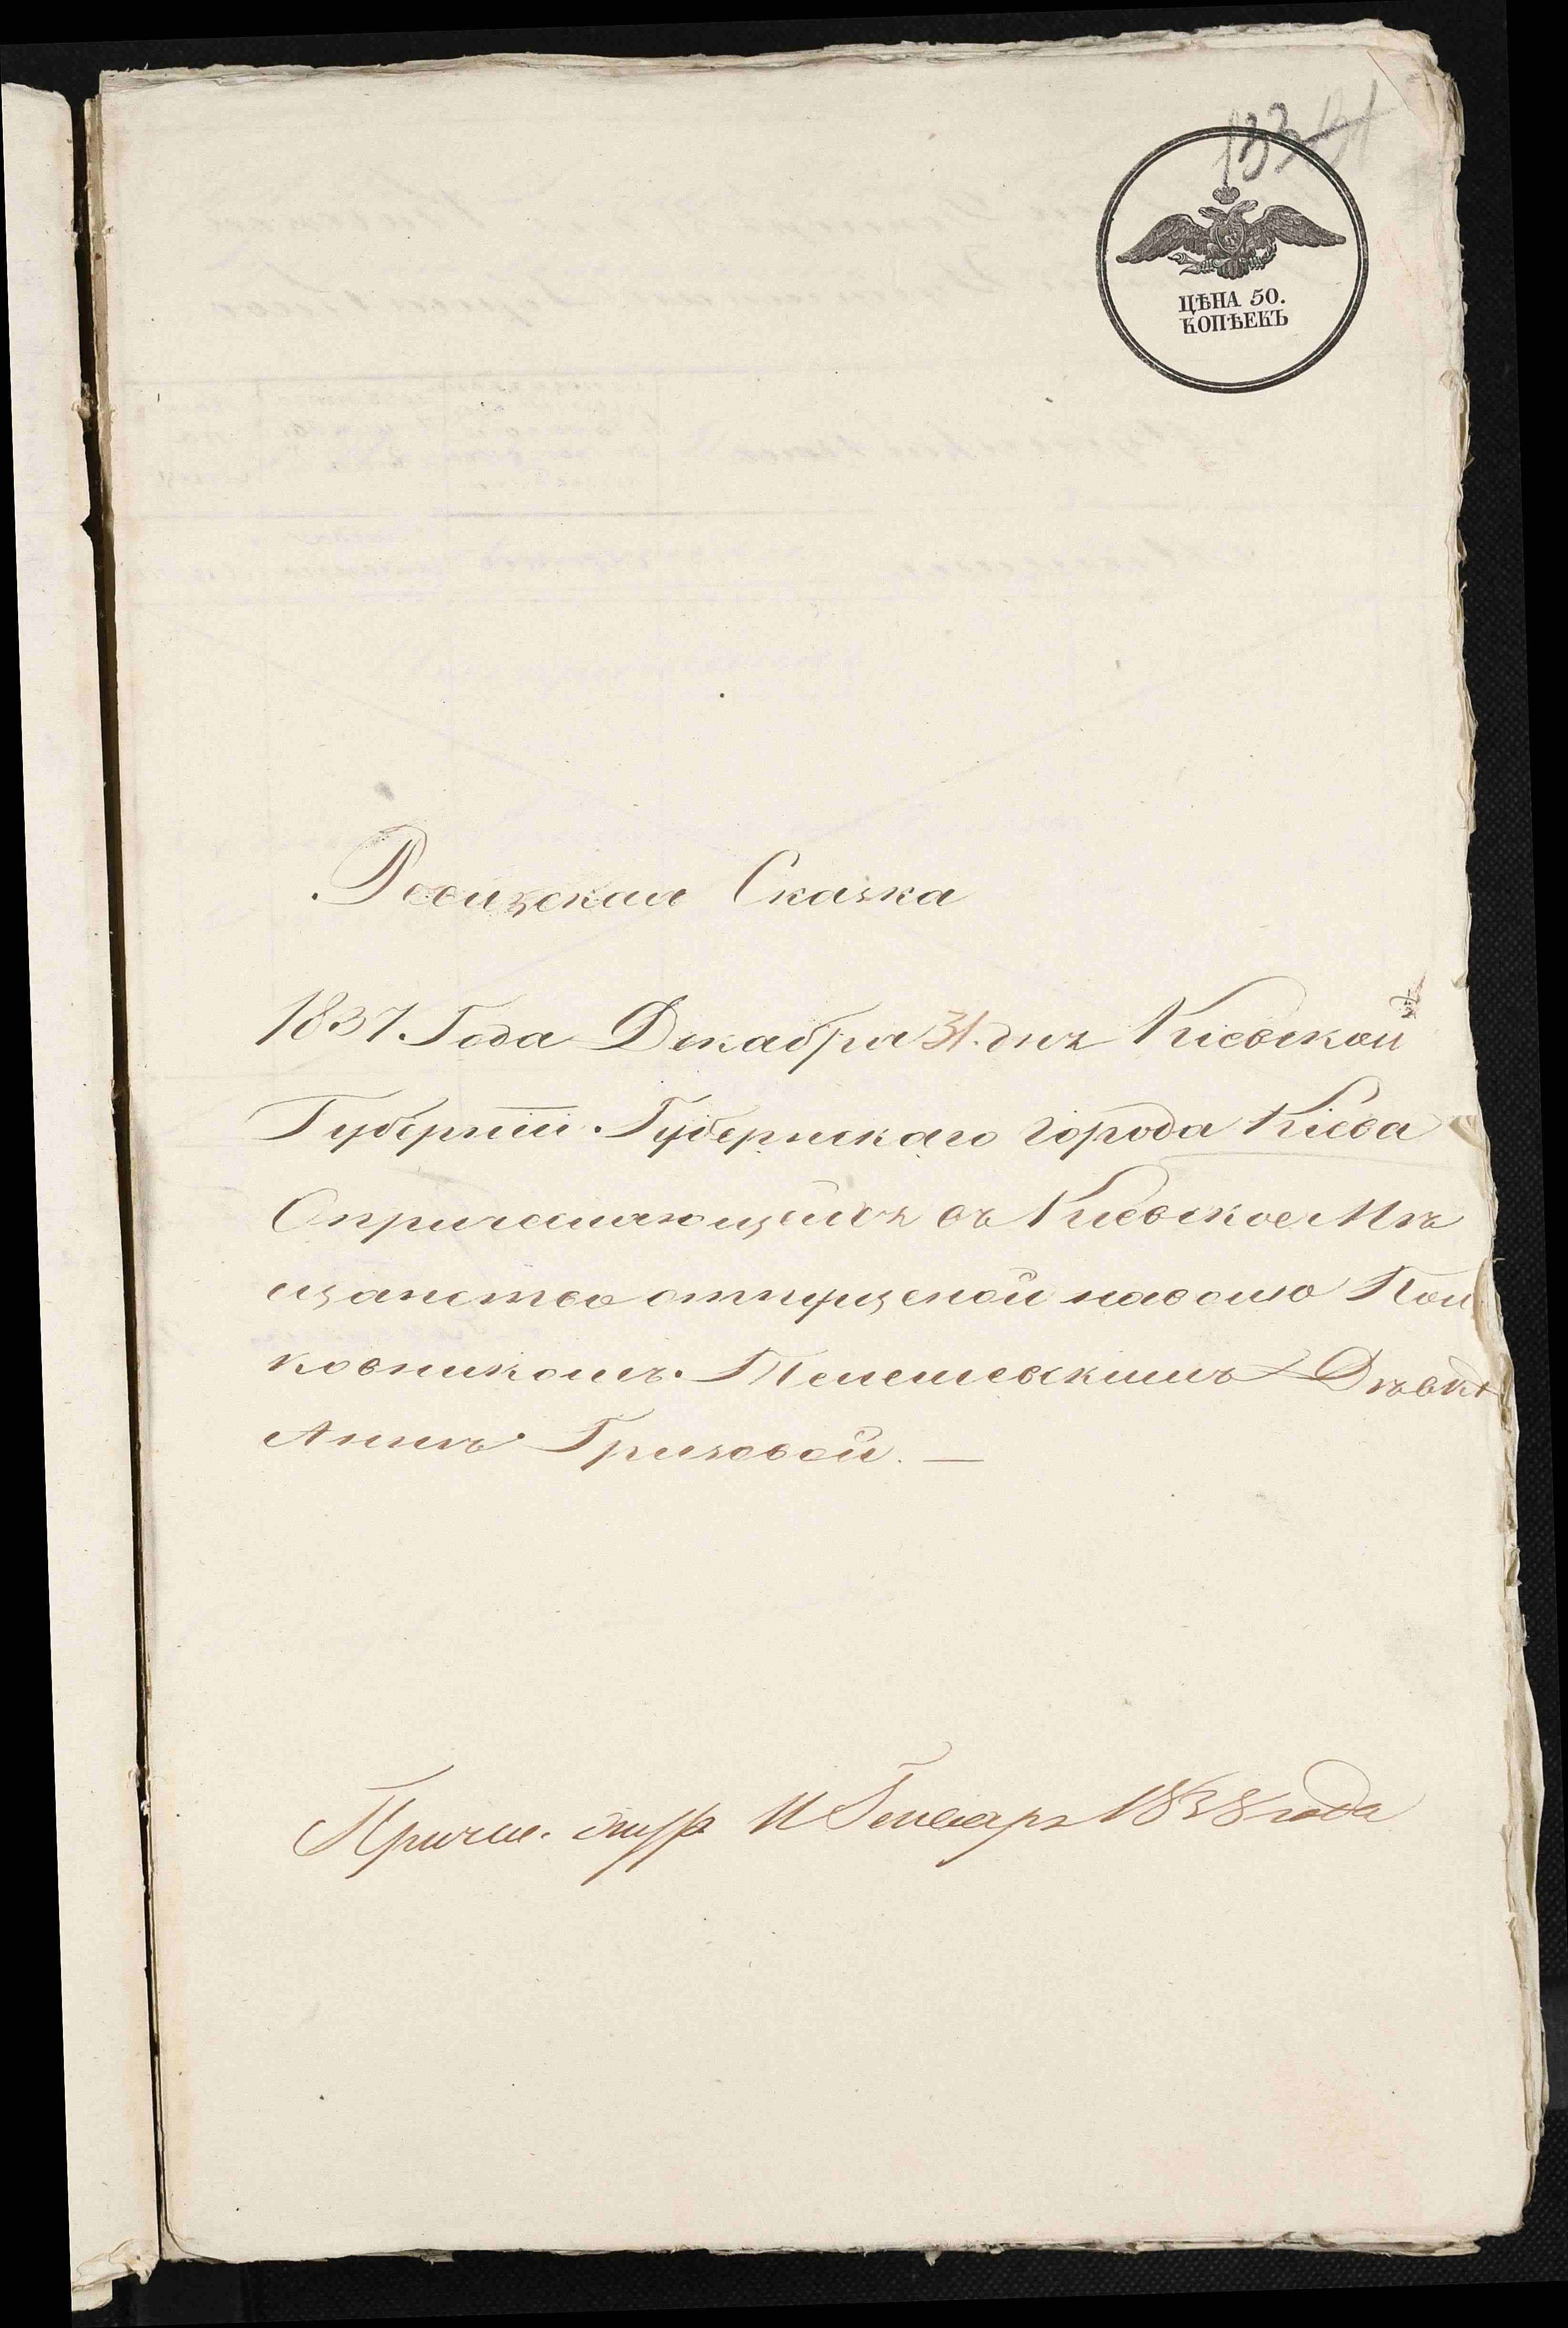 133
ЦѢНА 50.
КОПѢЕКЪ
Ревизская Сказка
1837. Года Декабря 31. дня Кіевской
Губерніи. Губернскаго города Кіева
Опричисляющейся въ Кіевское Мѣ
щанство отпущеной наволю Пол
ковникомъ. Телешевскимъ Дѣвкѣ
Аннѣ Гризовой. —
11 Генваря 1838 года